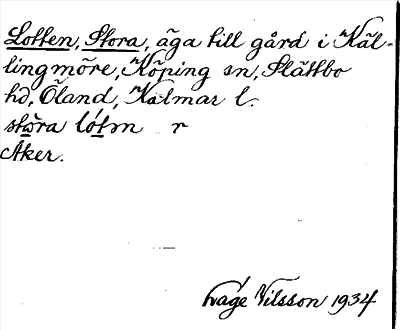 Lotten, Stora, äga till gård i Käl-
lingmöre, Köping sn, Slättbo
hd, Öland, Kalmar l.
stora lótn r
Åker.
Wåge Nilsson 1934